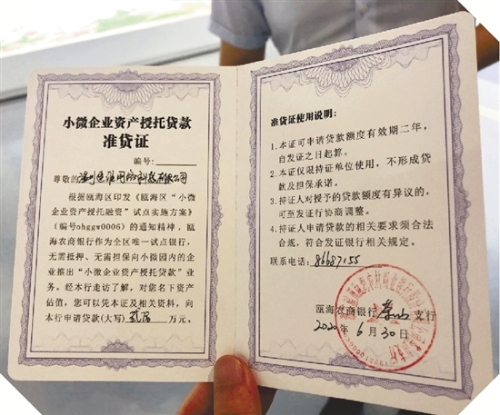 小微企业资产授托贷款
准贷证
编号:
尊敬的
根据瓯海区印发《瓯海区“小微
企业资产授托融资”试点实施方案》
(编号ohggw0006)的通知精神,
瓯海农商银行作为全区唯一试点银行,
无需抵押、无需担保向小微园内的企
业推出“小微企业资产授托贷款”业
务。经本行走访了解,对您名下资产
估值,您可以凭本证及相关资料,向
本行申请贷款(大写) 贰百 万元。
准贷证使用说明:
1.本证可申请贷款额度有效期二年,
自发证之日起算。
2.本证仅限持证单位使用,不形成贷
款及担保承诺。
3.持证人对授予的贷款额度有异议的,
可至发证行协商调整。
4.持证人申请贷款的相关要求须合法
合规,符合发证银行相关规定。
联系电话: 86687155
瓯海农商银行 茶山 支行
2020年6月30日